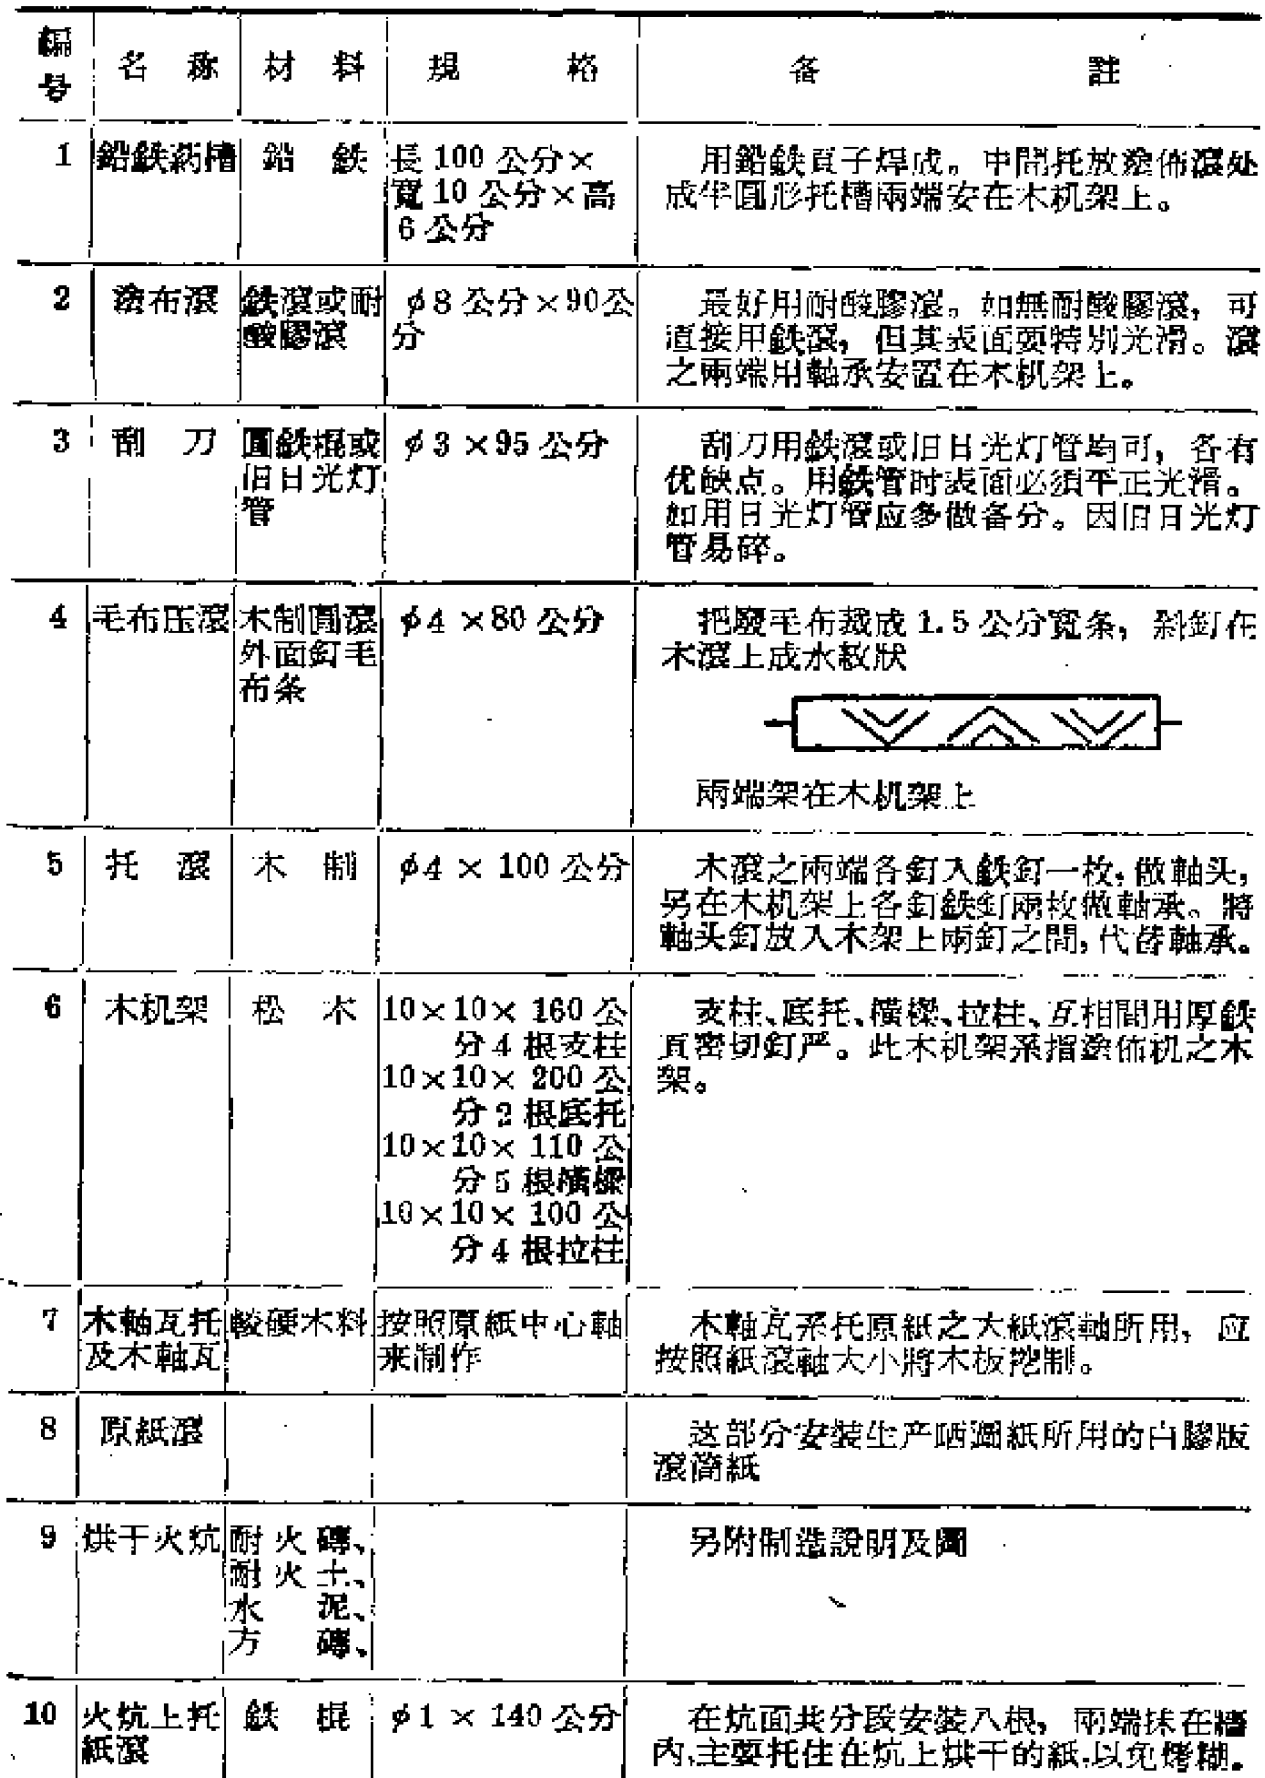 編号 名称 材料 規格 备註
1 鉛鉄药槽 鉛鉄 長 100 公分×寬 10 公分×高 6 公分
用鉛鉄頁子焊成。中間托放塗佈滾处
成半圓形托槽兩端安在木机架上。
2 塗布滾 鉄滾或耐酸膠滾 φ8 公分×90公分
最好用耐酸膠滾。如無耐酸膠滾，可
直接用鉄滾，但其表面要特別光滑。滾
之兩端用軸承安置在木机架上。
3 刮刀 圓鉄棍或旧日光灯管 φ3×95 公分
刮刀用鉄滾或旧日光灯管均可，各有
优缺点。用鉄管时表面必須平正光滑。
如用日光灯管应多做备分。因旧日光灯
管易碎。
4 毛布压滾 木制圓滾外面釘毛布条 φ4×80 公分
把廢毛布裁成 1.5 公分寬条，斜釘在
木滾上成水紋狀
兩端架在木机架上
5 托滾 木制 φ4 × 100 公分
木滾之兩端各釘入鉄釘一枚，做軸头，
另在木机架上各釘鉄釘兩枚做軸承。將
軸头釘放入木架上兩釘之間，代替軸承。
6 木机架 松木
10×10×160 公分 4 根支柱
10×10×200 公分 2 根底托
10×10×110 公分 5 根橫樑
10×10×100 公分 4 根拉柱
支柱、底托、橫樑、拉柱、互相間用厚鉄
頁密切釘严。此木机架系指塗佈机之木
架。
7 木軸瓦托及木軸瓦 較硬木料 按照原紙中心軸来制作
木軸瓦系托原紙之大紙滾軸所用，应
按照紙滾軸大小將木板挖制。
8 原紙滾
这部分安裝生产晒圖紙所用的白膠版
滾筒紙
9 烘干火炕 耐火磚、耐火土、水泥、方磚、
另附制造說明及圖
10 火炕上托紙滾 鉄棍 φ1 × 140 公分
在炕面共分段安裝八根，兩端抹在牆
內，主要托住在炕上烘干的紙，以免烤糊。